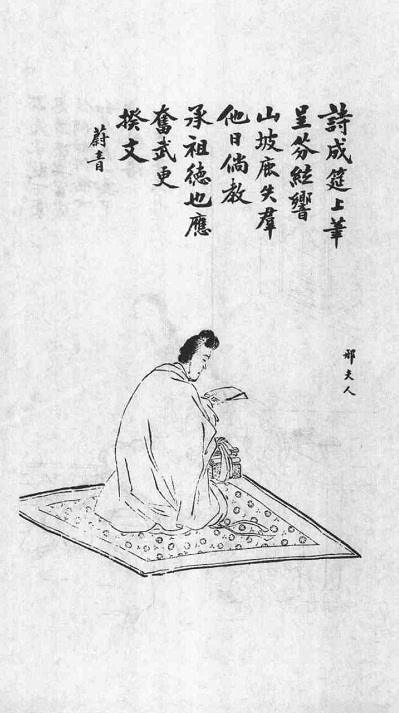 詩成筵上筆
呈芬絃響
山坡鹿失羣
他日倘教
承祖德也應
奮武更
揆文
蔚音
邢夫人